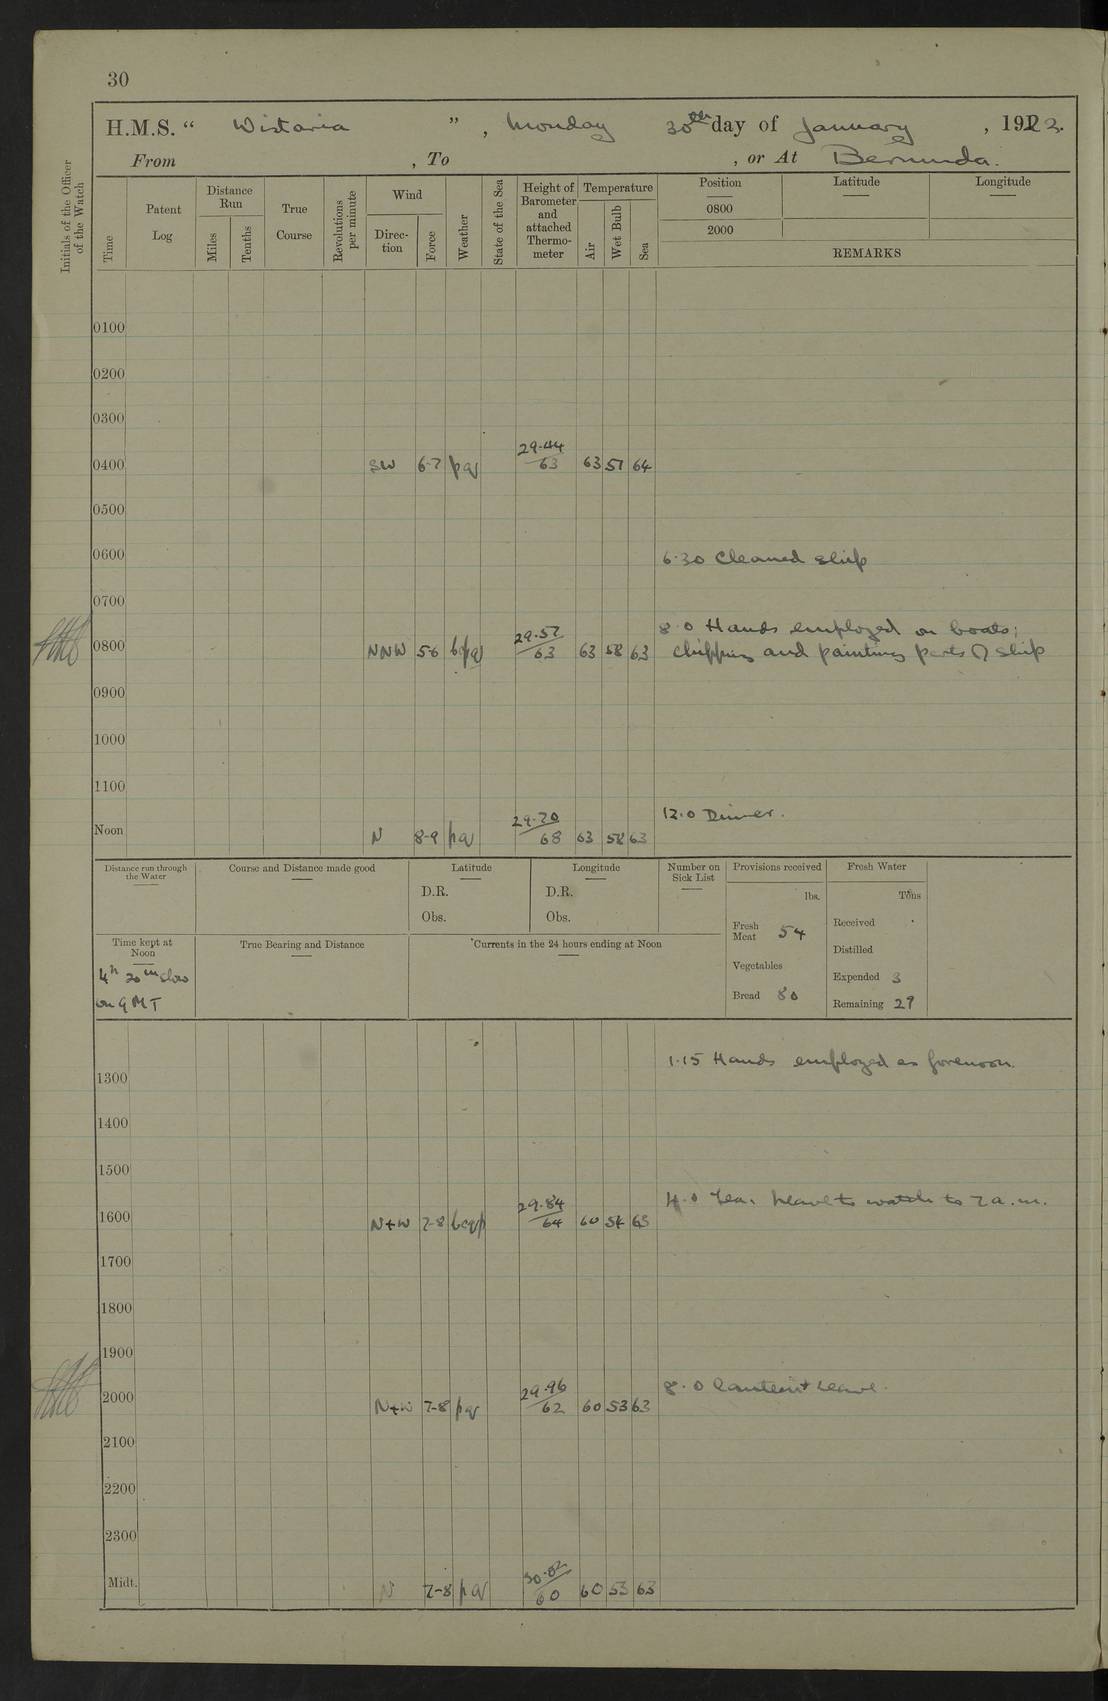 30
H.M.S. " Wistaria ", Monday 30th day of January, 1922.
From , To , or At Bermuda.
Initials of the Officer of the Watch
Time
Patent Log
Distance Run
Miles
Tenths
True Course
Revolutions per minute
Wind
Direction
Force
Weather
State of the Sea
Height of Barometer and attached Thermometer
Temperature
Air
Wet Bulb
Sea
Position
Latitude
Longitude
0800
2000
REMARKS
0100
0200
0300
0400 SW 6-7 pq 29.44/63 63 57 64
0500
0600 6.30 Cleaned ship
0700
8.0 Hands employed on boats;
0800 NNW 5-6 29.57/63 63 58 63 chipping and painting parts of ship
0900
1000
1100
12.0 Dinner.
Noon N 8-9 pq 29.70/68 63 58 63
Distance run through the Water
Course and Distance made good
Latitude
D.R.
Obs.
Longitude
D.R.
Obs.
Number on Sick List
Provisions received
lbs.
Fresh Meat 54
Vegetables
Bread 80
Fresh Water
Tons
Received
Distilled
Expended 3
Remaining 29
Time kept at Noon
4h 20m slow
on GMT
True Bearing and Distance
Currents in the 24 hours ending at Noon
1.15 Hands employed as forenoon.
1300
1400
1500
4.0 Tea. Leave to watch to 7 a.m.
1600 N+W 7-8 bcqp 29.84/64 60 54 63
1700
1800
1900
8.0 Canteen leave.
2000 N+W 7-8 pq 29.96/62 60 53 63
2100
2200
2300
Midt. N 7-8 pq 30.02/60 60 53 63